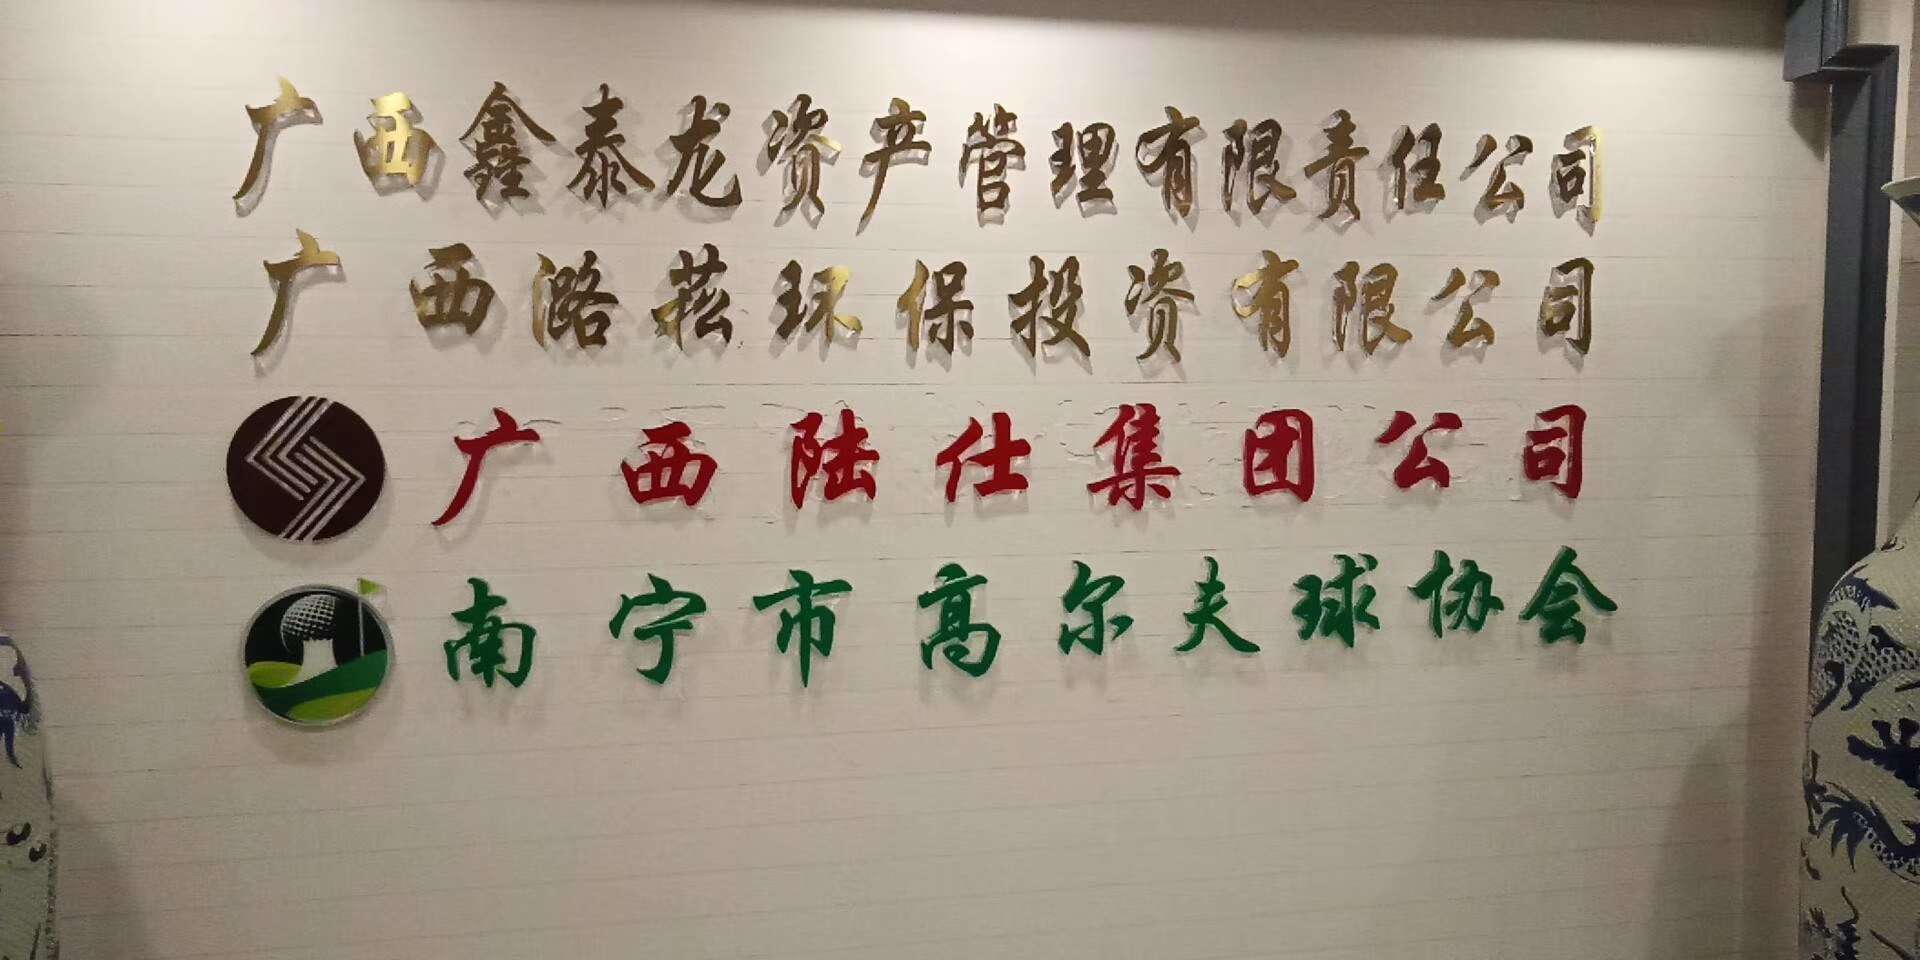 广西鑫泰龙资产管理有限责任公司
广西潞菘环保投资有限公司
广西陆仕集团公司
南宁市高尔夫球协会